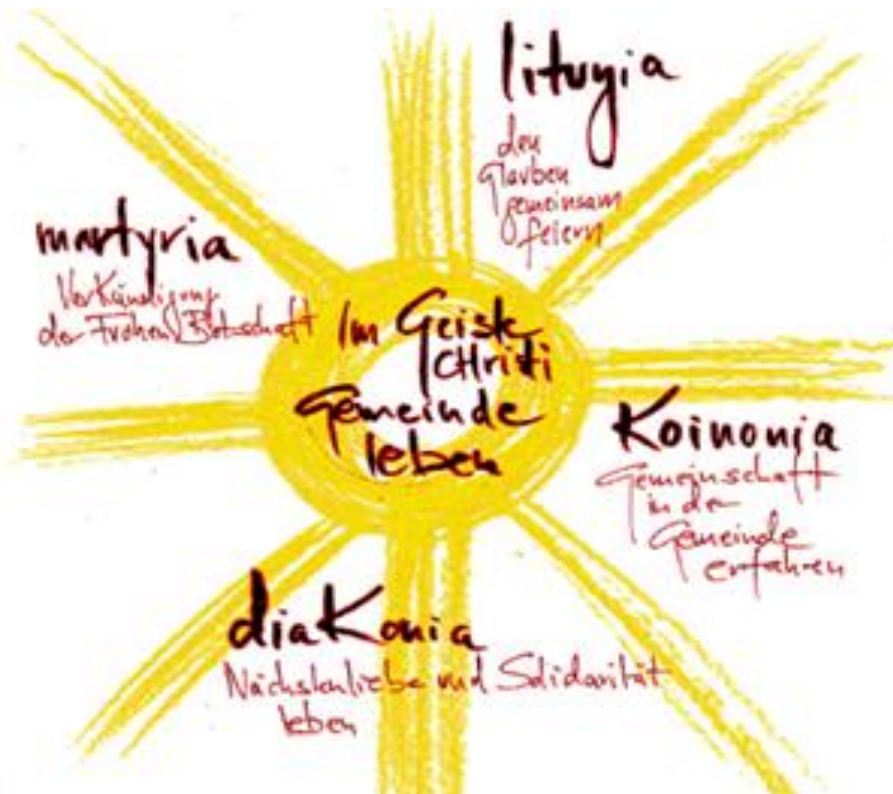 liturgia
den
Glauben
gemeinsam
feiern
martyria
Verkündigung
der Frohen Botschaft
Im Geiste
CHristi
Gemeinde
leben
Koinonia
Gemeinschaft
in der
Gemeinde
erfahren
diaKonia
Nächstenliebe und Solidarität
leben